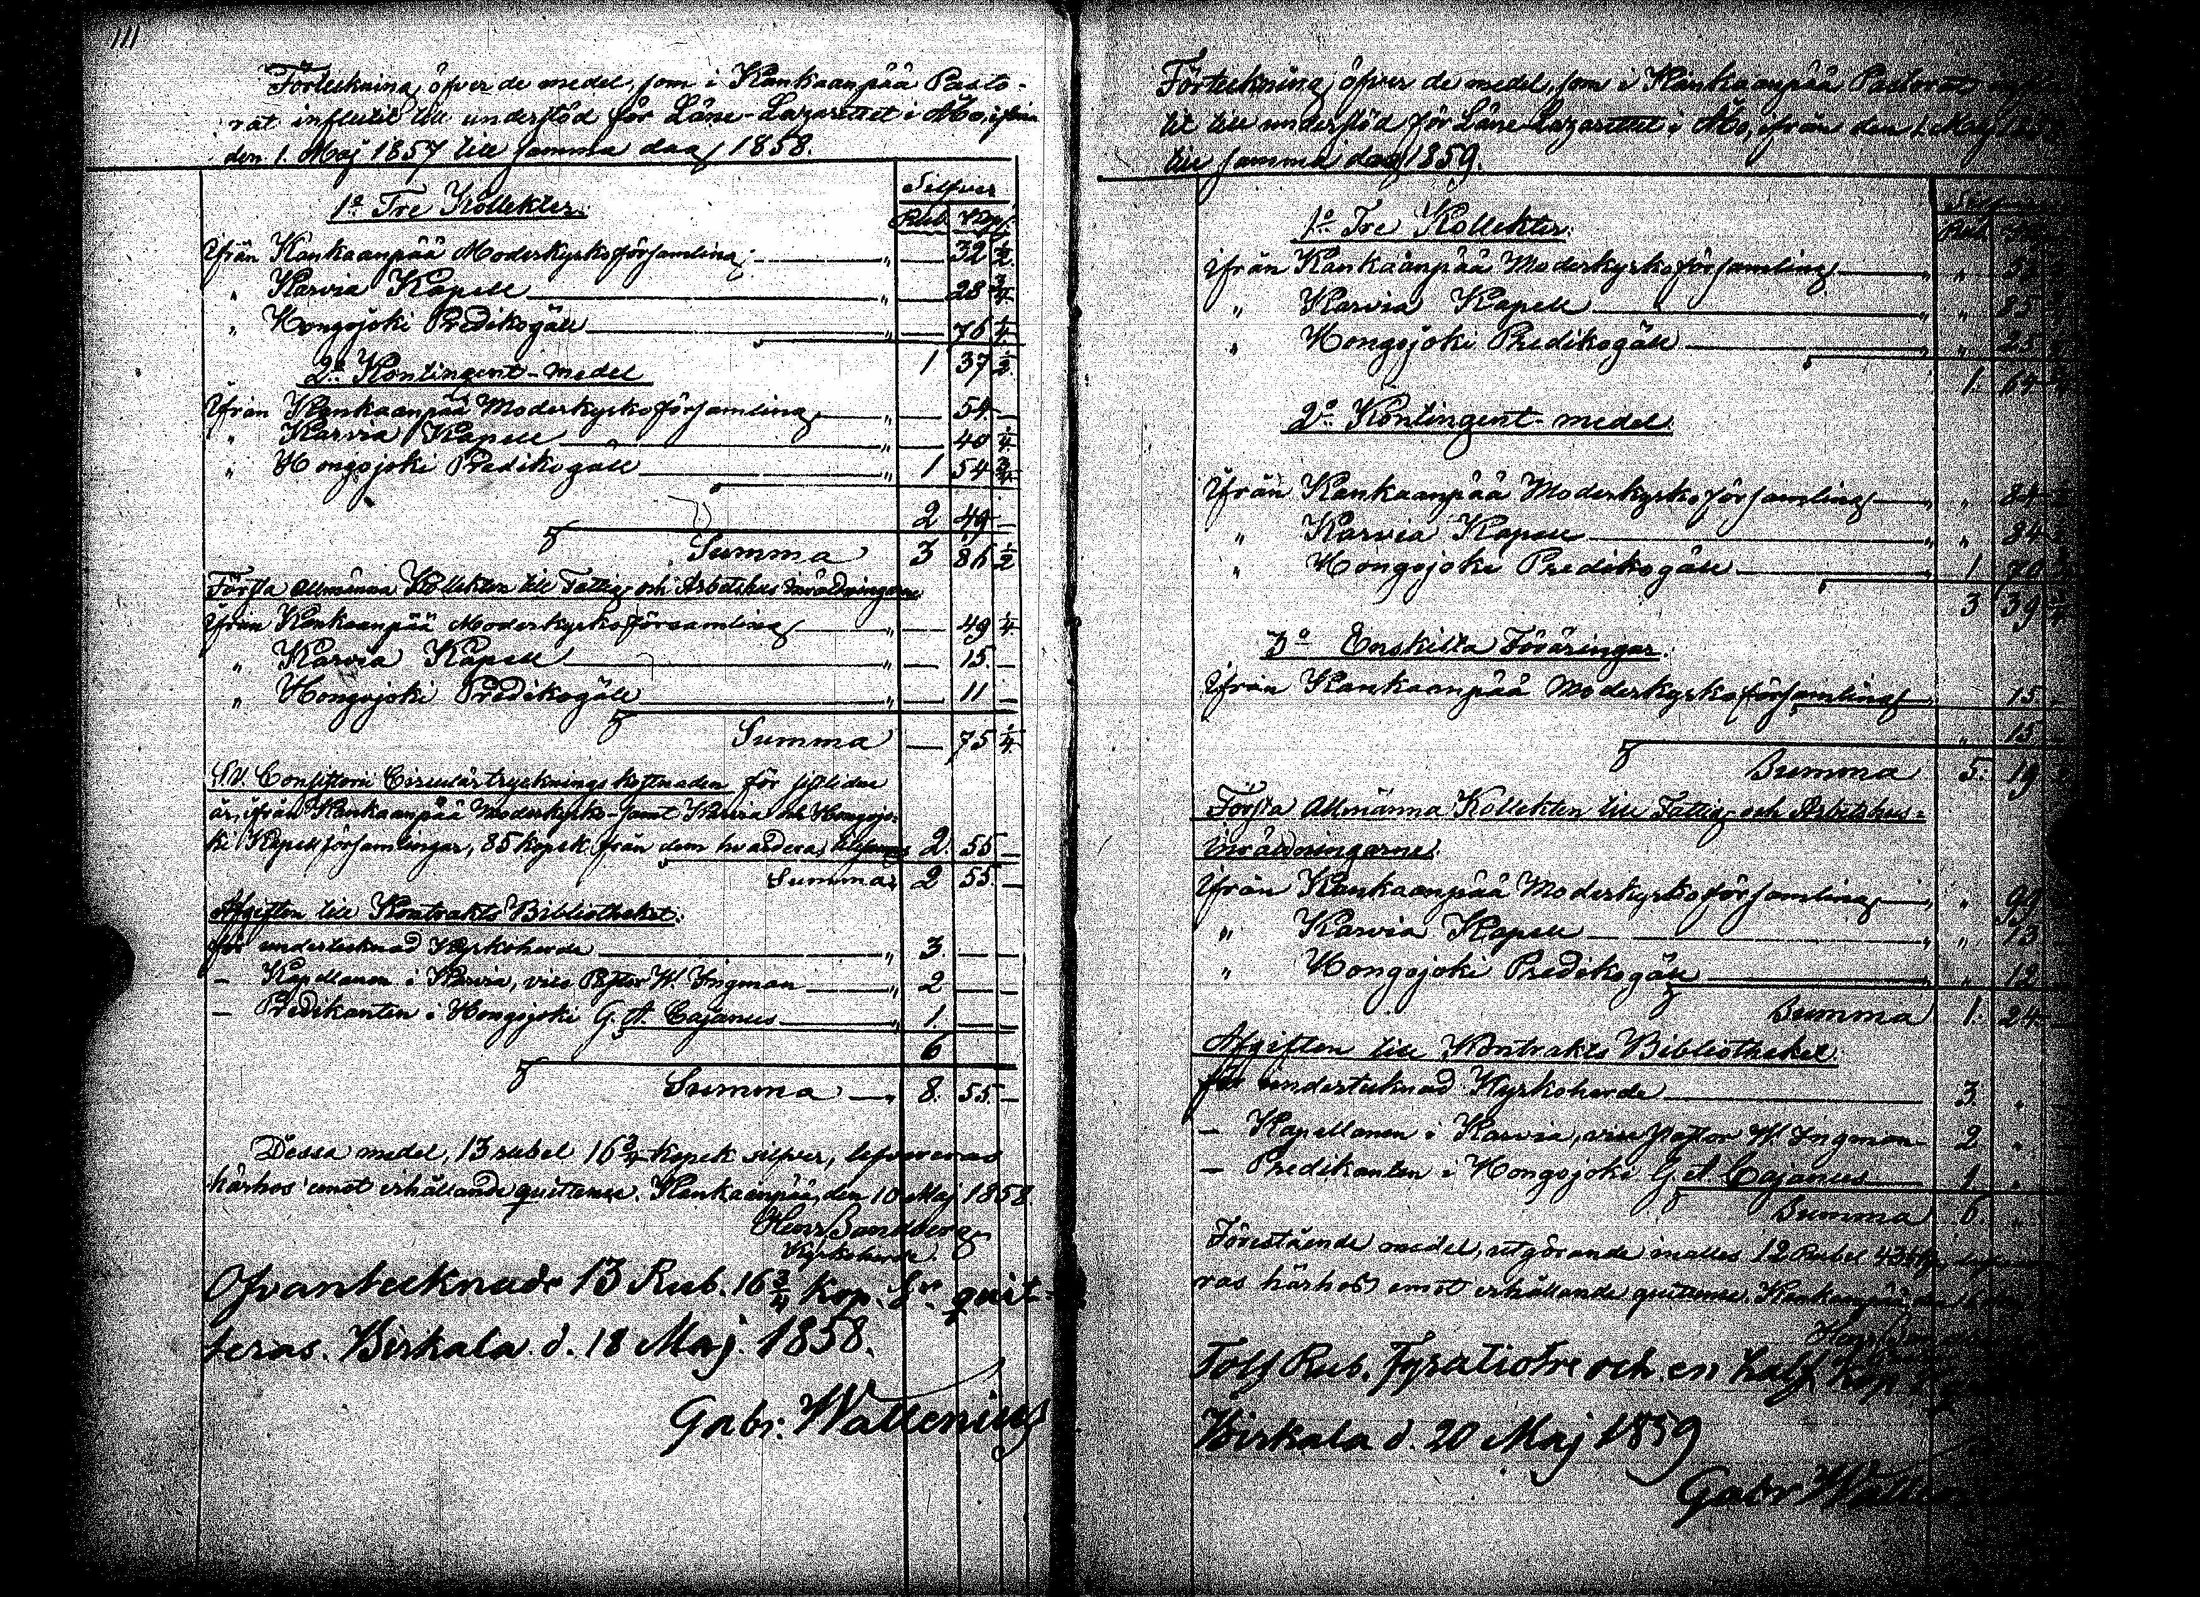 111
Förteckning öfver de medel, som i Kankaanpää Pasto-
rat influtit till understöd för Läne-Lazarettet i Åbo, ifrån
den 1. Maj 1857 till samma dag 1858.
Silfver
Rub. Kop.
1o Tre Kollekter.
Ifrån Kankaanpää Moderkyrkoförsamling " — 32 1/2
" Karvia Kapell " — 28 3/4
" Hongojoki Predikogäll " — 76 1/4
1 37 1/2
2o Kontingent-medel
Ifrån Kankaanpää Moderkyrkoförsamling " — 54 —
" Karvia Kapell " — 40 1/4
" Hongojoki Predikogäll " 1 54 3/4
2 49 —
Summa 3 86 1/2
Första allmänna Kollekten till Fattig- och Arbetshus inrättningarne
Ifrån Kankaanpää Moderkyrkoförsamling " — 49 1/4
" Karvia Kapell " — 15 —
" Hongojoki Predikogäll " — 11 —
Summa — 75 1/4
Consistorii Circulär tryckningskostnaden för
år, ifrån Kankaanpää Moderkyrko- samt Karvia och Hongojo-
ki Kapellförsamlingar, 85 kopek från dem hvardera, 2. 55 —
Summa 2 55 —
Afgiften till Kontrakts Bibliotheket.
för undertecknad Kyrkoherde " 3. — —
— Kapellanen i Karvia, vice Pastor W. Ingman " 2 — —
— Predikanten i Hongojoki G. A. Cajanus " 1. — —
6
Summa " 8. 55. —
Dessa medel, 13 rubel 16 3/4 kopek silfver, lefvereras
härhos emot erhållande quittence. Kankaanpää, den 10 Maj 1858.
Henr Sandberg
Kyrkoherde.
Ofvantecknade 13 Rub. 16 3/4 Kop. Sr. quit-
teras. Birkala d. 18 Maj. 1858.
Gabr: Wallenius
Förteckning öfver de medel, som i Kankaanpää Pastorat
tit till understöd för Läne-Lazarettet i Åbo, ifrån den 1. Maj
till samma dag 1859.
Rub.
1o Tre Kollekter.
Ifrån Kankaanpää Moderkyrkoförsamling " "
" Karvia Kapell " " 85
" Hongojoki Predikogäll " " 25
1. 64
2o Kontingent-medel.
Ifrån Kankaanpää Moderkyrkoförsamling " " 84
" Karvia Kapell " " 84
" Hongojoki Predikogäll " 1 70
3 39
3o Enskilta Föräringar.
Ifrån Kankaanpää Moderkyrkoförsamling 15.
" 15
Summa 5. 19
Första Allmänna Kollekten till Fattig- och Arbetshus-
inrättningarne.
Ifrån Kankaanpää Moderkyrkoförsamling " " 99
" Karvia Kapell " " 13
" Hongojoki Predikogäll " " 12
Summa 1. 24
Afgiften till Kontrakts Bibliotheket.
för undertecknad Kyrkoherde 3.
— Kapellanen i Karvia, vice Pastor W. Ingman 2
— Predikanten i Hongojoki G. A. Cajanus 1
Summa 6.
Förestående medel, utgörande inalles 12 Rubel 43 1/2
ras härhos emot erhållande quittence. Kankaanpää
Henr
Tolf Rub. Fyratiotre och en half Kop.
Birkala d. 20 Maj 1859
Gabr